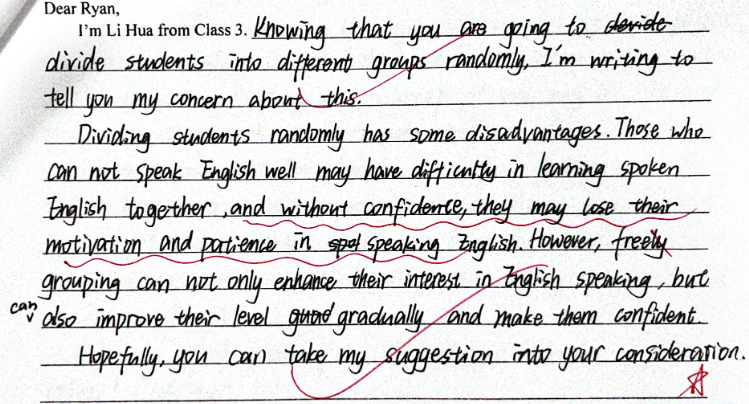 Dear Ryan,
I'm Li Hua from Class 3. Knowing that you are going to devide
divide students into different groups randomly, I'm writing to
tell you my concern about this.
Dividing students randomly has some disadvantages. Those who
can not speak English well may have difficulty in learning spoken
English together, and without confidence, they may lose their
motivation and patience in spea speaking English. However, freely
grouping can not only enhance their interest in English speaking, but
can
also improve their level gradually and make them confident.
Hopefully, you can take my suggestion into your consideration.